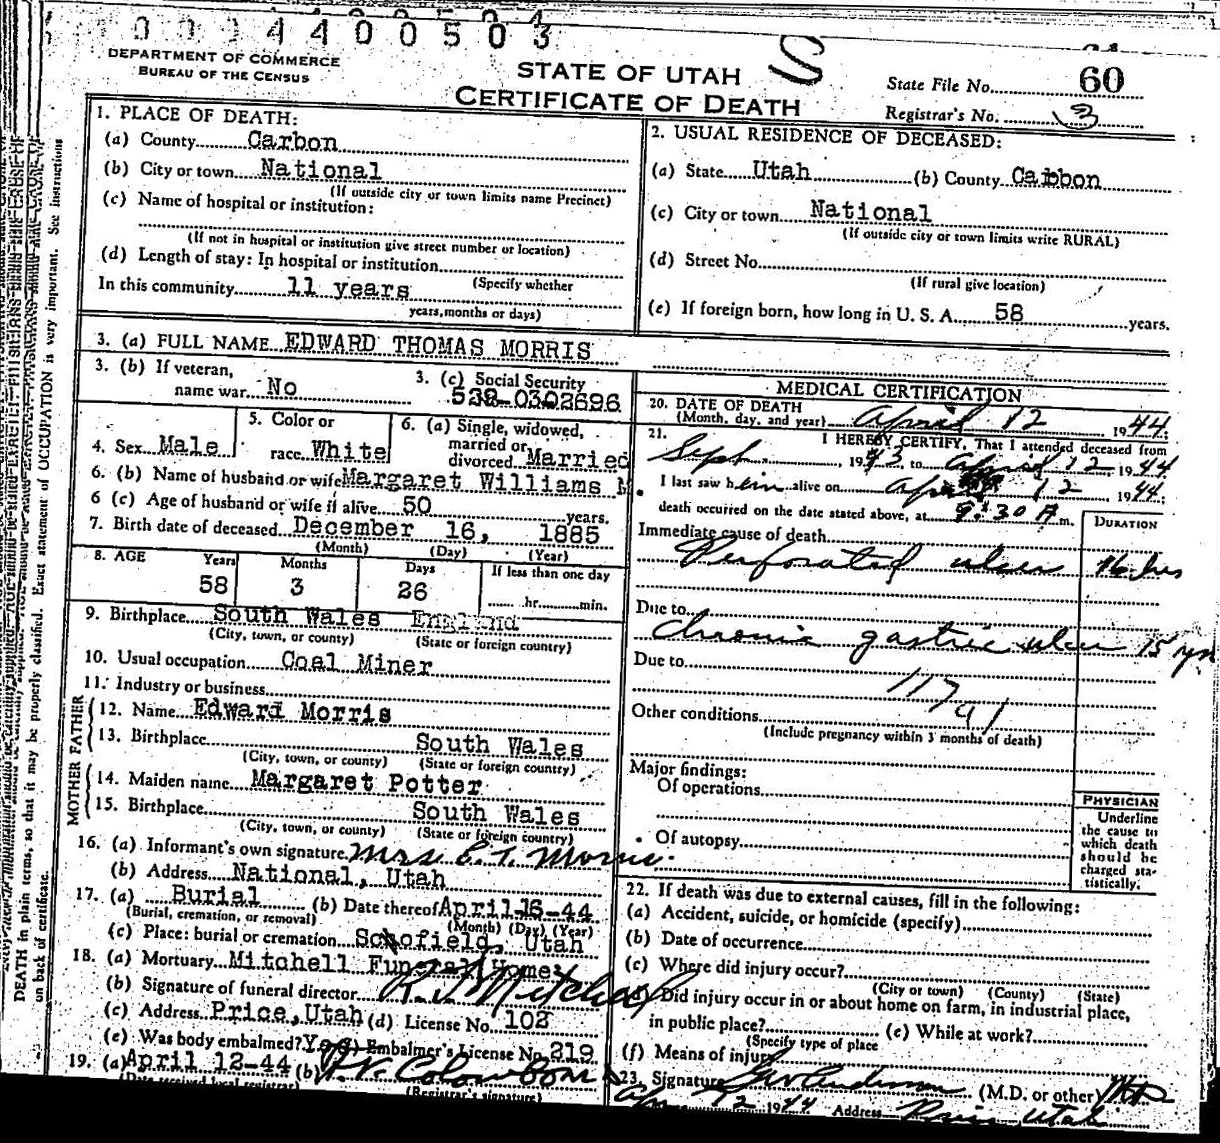 0 0 4 4 0 0 5 0 3
DEPARTMENT OF COMMERCE
BUREAU OF THE CENSUS
STATE OF UTAH
CERTIFICATE OF DEATH
S
State File No. 60
Registrar's No. 3
1. PLACE OF DEATH:
(a) County Carbon
(b) City or town National
(If outside city or town limits name Precinct)
(c) Name of hospital or institution:
(If not in hospital or institution give street number or location)
(d) Length of stay: In hospital or institution
(Specify whether
In this community 11 years
years, months or days)
2. USUAL RESIDENCE OF DECEASED:
(a) State Utah (b) County Carbon
(c) City or town National
(If outside city or town limits write RURAL)
(d) Street No.
(If rural give location)
(e) If foreign born, how long in U. S. A. 58 years.
3. (a) FULL NAME EDWARD THOMAS MORRIS
3. (b) If veteran, name war No
3. (c) Social Security
0302696
4. Sex Male
5. Color or race White
6. (a) Single, widowed, married or divorced Married
6. (b) Name of husband or wife Margaret Williams M
6 (c) Age of husband or wife if alive 50 years.
7. Birth date of deceased December 16, 1885
(Month) (Day) (Year)
8. AGE Years Months Days If less than one day
58 3 26 hr. min.
9. Birthplace South Wales England
(City, town, or county) (State or foreign country)
10. Usual occupation Coal Miner
11. Industry or business
FATHER
12. Name Edward Morris
13. Birthplace South Wales
(City, town, or county) (State or foreign country)
MOTHER
14. Maiden name Margaret Potter
15. Birthplace South Wales
(City, town, or county) (State or foreign country)
16. (a) Informant's own signature Mrs. E. T. Morris.
(b) Address National, Utah
17. (a) Burial (b) Date thereof April-16-44
(Burial, cremation, or removal) (Month) (Day) (Year)
(c) Place: burial or cremation Scofield, Utah
18. (a) Mortuary Mitchell Funeral Home
(b) Signature of funeral director Mitchell
(c) Address Price, Utah (d) License No. 102
(e) Was body embalmed? Yes (f) Embalmer's License No. 219
19. (a) April 12-44 (b)
(Date received local registrar) (Registrar's signature)
MEDICAL CERTIFICATION
20. DATE OF DEATH
(Month, day, and year) April 12 1944
21. I HEREBY CERTIFY, That I attended deceased from
Sept 1943 to April 12 1944
I last saw him alive on April 12 1944
death occurred on the date stated above, at 9:30 A m.
DURATION
Immediate cause of death
Perforated ulcer 16 hrs
Due to
Chronic gastric ulcer 15 yrs
Due to
117
Other conditions
(Include pregnancy within 3 months of death)
Major findings:
Of operations
Of autopsy
PHYSICIAN
Underline
the cause to
which death
should be
charged sta-
tistically.
22. If death was due to external causes, fill in the following:
(a) Accident, suicide, or homicide (specify)
(b) Date of occurrence
(c) Where did injury occur?
(City or town) (County) (State)
Did injury occur in or about home on farm, in industrial place,
in public place? (e) While at work?
(Specify type of place
(f) Means of injury
23. Signature (M.D. or other) MD
12 1944 Address Utah
DEATH in plain terms, so that it may be properly classified. Exact statement of OCCUPATION is very important. See instructions
on back of certificate.